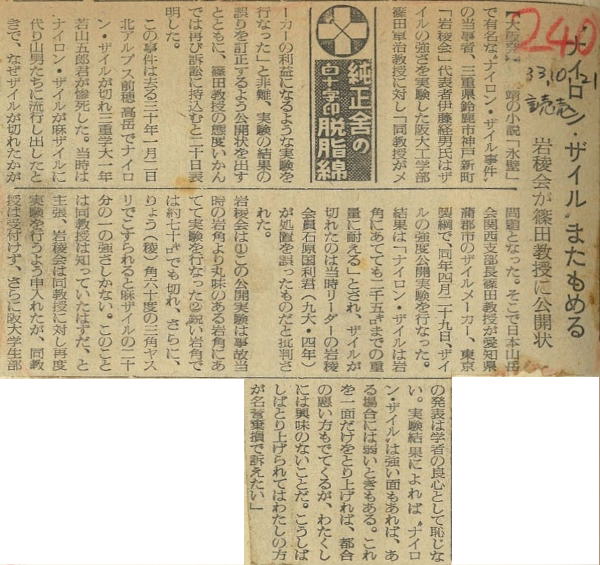 240
33.10.21
読売
“ナイロン・ザイル”またもめる
岩稜会が篠田教授に公開状
【大阪発】
靖の小説「氷壁」
で有名な“ナイロン・ザイル事件”
の当事者、三重県鈴鹿市神戸新町
「岩稜会」代表者伊藤経男氏はザ
イルの強さを実験した阪大工学部
篠田軍治教授に対し「同教授がメ
ーカーの利益になるような実験を
行なった」と非難、実験の結果の
誤りを訂正するよう公開状を出す
とともに、篠田教授の態度いかん
では再び訴訟に持込むと二十日表
明した。
この事件は去る三十年一月二日
北アルプス前穂高岳でナイロ
ン・ザイルが切れ三重大学一年
若山五郎君が惨死した。当時は
ナイロン・ザイルが麻ザイルに
代り山男たちに流行し出したと
きで、なぜザイルが切れたかが
純正舎の
白十字印脱脂綿
問題となった。そこで日本山岳
会関西支部長篠田教授が愛知県
蒲郡市のザイルメーカー、東京
製綱で、同年四月二十九日、ザイ
ルの強度公開実験を行なった。
結果は「ナイロン・ザイルは岩
角にあてても二千五㌔までの重
量に耐える」とされ、ザイルが
切れたのは当時リーダーの岩稜
会員石原国利君（九大・四年）
が処置を誤ったものだと批判さ
れた。
岩稜会は①この公開実験は事故当
時の岩角より丸味のある岩角にあ
てて実験を行なった②鋭い岩角で
は約七十㌔でも切れ、さらに、
りょう（稜）角六十度の三角ヤス
リでこすられると麻ザイルの二十
分の一の強さしかない。このこと
は同教授は知っていたはずだ、と
主張、岩稜会は同教授に対し再度
実験を行うよう申入れたが、同教
授は受付けず、さらに阪大学生部
の発表は学者の良心として恥じな
い。実験結果によれば“ナイロ
ン・ザイル”は強い面もあれば、あ
る場合には弱いときもある。これ
を一面だけをとり上げれば、都合
の悪い方もでてくるが、わたくし
には興味のないことだ。こうしば
しばとり上げられてはわたしの方
が名誉棄損で訴えたい」